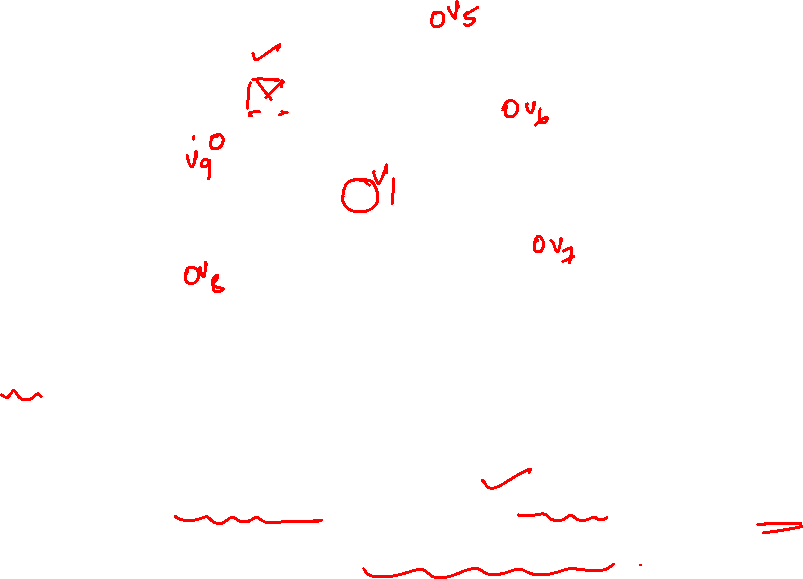 v5
v6
v9
v1
v7
v8